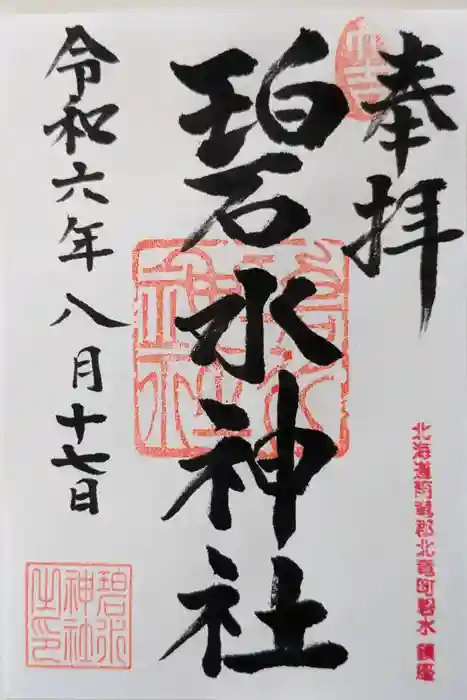 奉拝
北海道雨竜郡北竜町碧水 鎮座
碧水神社
令和六年八月十七日
碧水
神社
之印